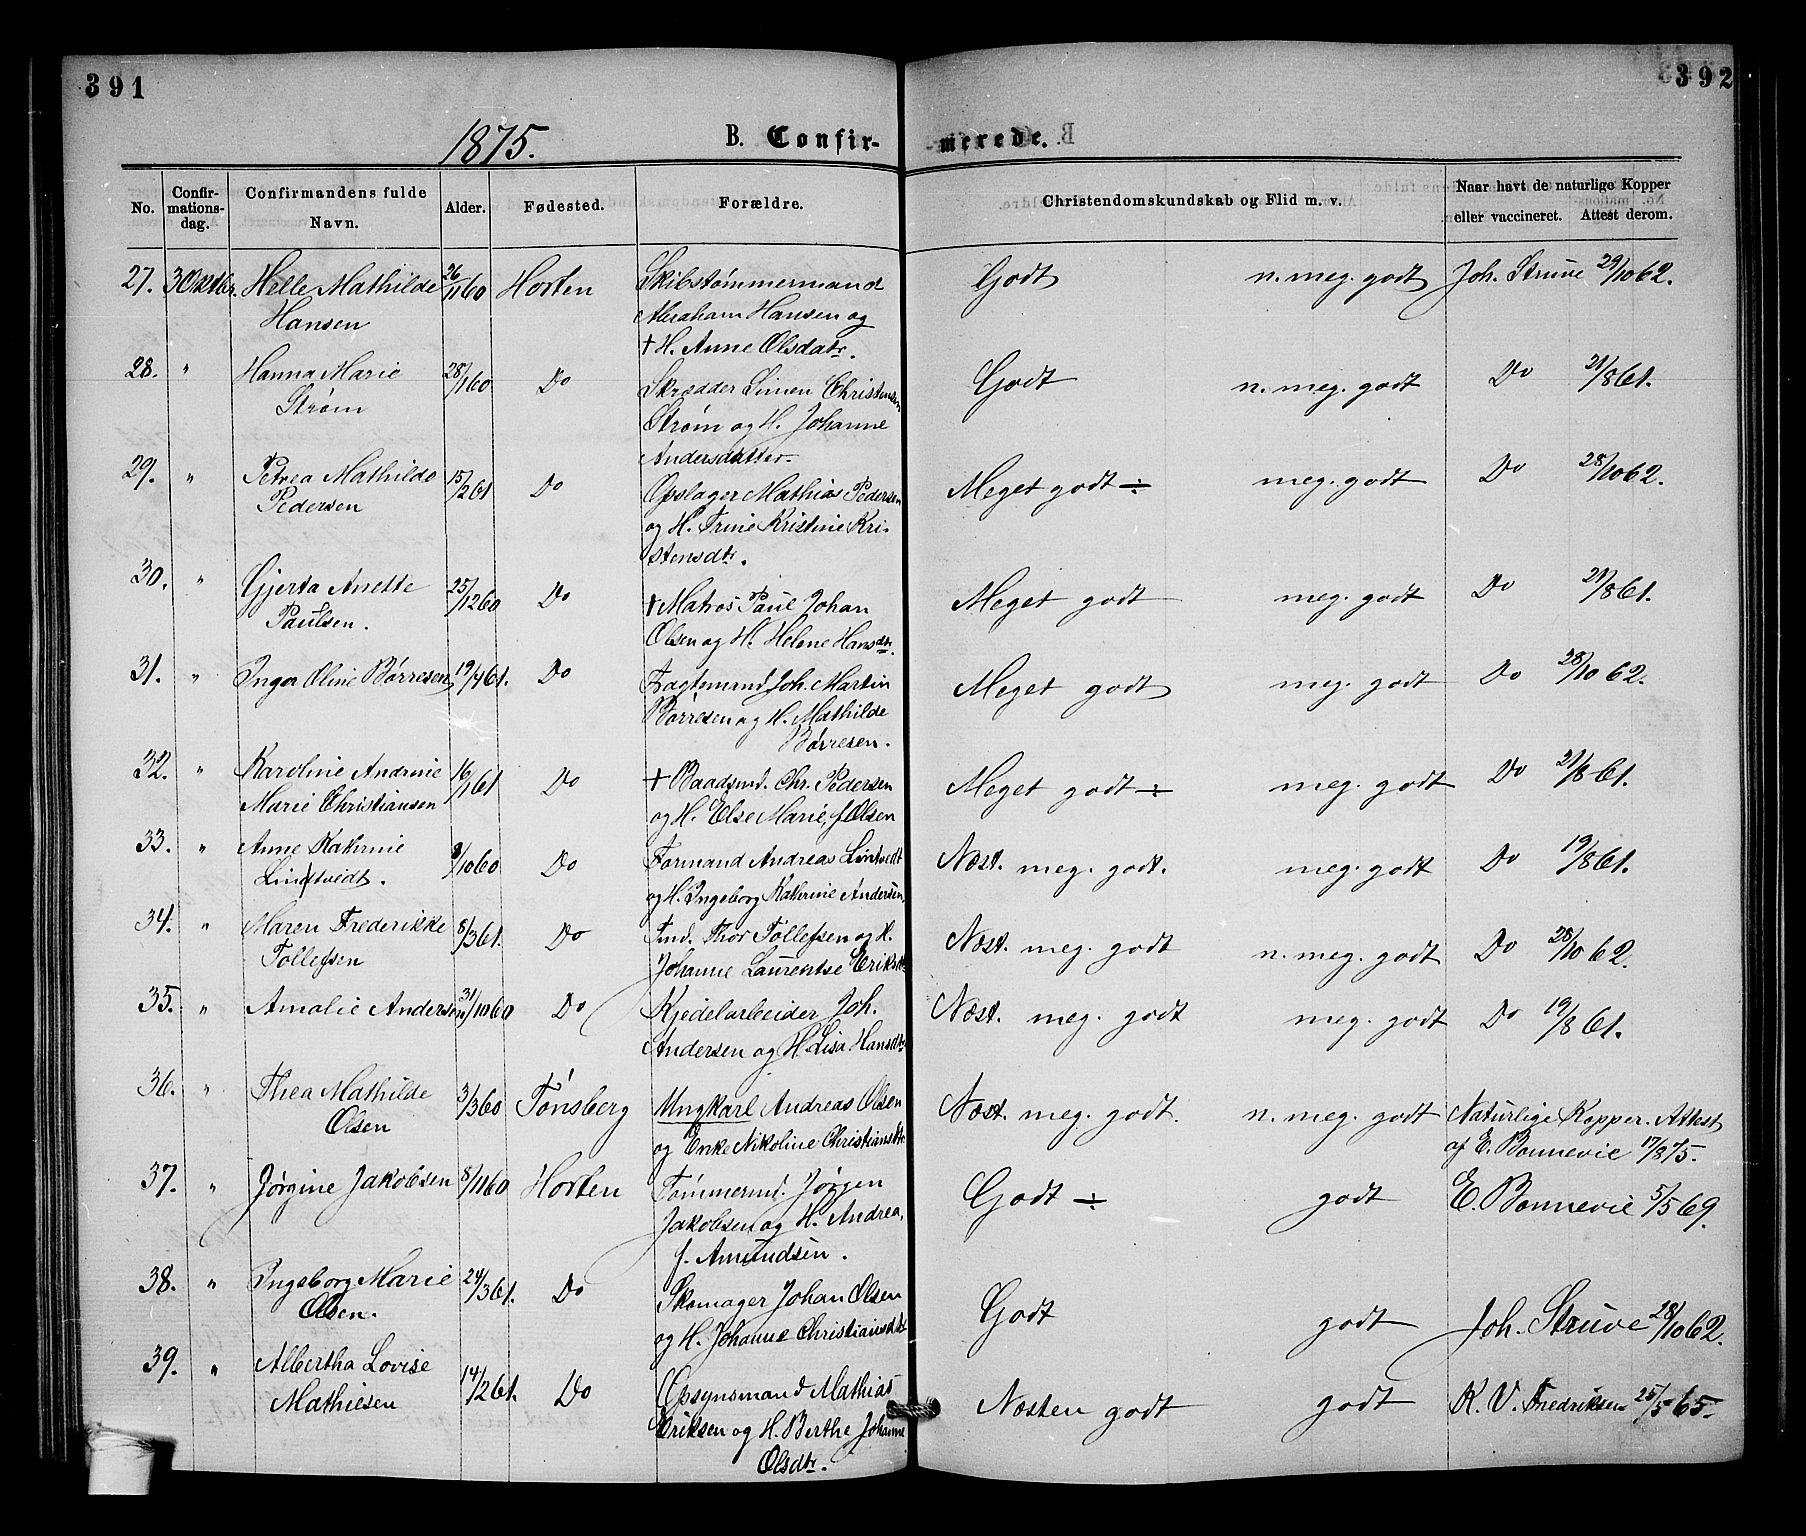 391
392
1875.
B. Confir-
merede.
No.
Confir-
mations-
dag.
Confirmandens fulde
Navn.
Alder.
Fødested.
Forældre.
Christendomskundskab og Flid m. v.
Naar havt de naturlige Kopper
eller vaccineret. Attest derom.
27. 3 Oktbr. Helle Mathilde 26/11 60 Horten Skibstømmermand Godt n. meg. godt Joh. Struve 29/10 62.
Hansen Abraham Hansen og
† H. Anne Olsdatr.
28. " Hanna Marie 28/1 60 Do Skrædder Simen Christensen Godt n. meg. godt Do 21/8 61.
Strøm Strøm og H. Johanne
Andersdatter.
29. " Petrea Mathilde 15/2 61 Do Opslager Mathias Pedersen Meget godt ÷ meg. godt Do 28/10 62.
Pedersen og H. Trine Kristine Kri-
stensdtr.
30. " Gjerta Anette 25/12 60 Do † Matros Paul Johan Meget godt meg. godt Do 21/8 61.
Paulsen. Olsen og H. Helene Hansdtr.
31. " Inga Oline Børresen 19/4 61. Do Fragtemand Joh. Martin Meget godt meg. godt Do 28/10 62.
Børresen og H. Mathilde
Børresen.
32. " Karoline Andrine 16/1 61 Do † Baadsmd. Chr. Pedersen Meget godt ÷ meg. godt Do 21/8 61.
Marie Christiansen og H. Else Marie, f. Olsen
33. " Anne Kathrine /10 60 Do Formand Andreas Lintvedt Næst. meg. godt. meg. godt Do 19/8 61.
Lindtvedt. og H. Ingeborg Kathrine Andersen,
34. " Maren Frederikke 8/3 61. Do Tmd. Thor Tollefsen og H. Næst. meg. godt n. meg. godt Do 28/10 62.
Tollefsen Johanne Laurentse Eriksdr.
35. " Amalie Andersen 31/10 60 Do Kjedelarbeider Joh. Næst. meg. godt meg. godt Do 19/8 61.
Andersen og H. Lisa Hansdtr
36. " Thea Mathilde 3/3 60 Tønsberg Ungkarl Andreas Olsen Næst. meg. godt. n. meg. godt Naturlige Kopper. Attest
Olsen og Enke Nikoline Christiansdtr. af E. Bonnevie 17/8 75.
37. " Jørgine Jakobsen 8/11 60 Horten Tømmermd. Jørgen Godt ÷ godt E. Bonnevie 5/5 69.
Jakobsen og H. Andrea,
f. Amundsen.
38. " Ingeborg Marie 24/3 61. Do Skomager Johan Olsen Godt godt Joh. Struve 28/10 62.
Olsen. og H. Johanne Christiansdtr
39. " Albertha Lovise 14/2 61. Do Opsynsmand Mathias Næsten godt godt K. V. Fredriksen 25/5 65.
Mathiesen Eriksen og H. Berthe Johanne
Olsdtr.